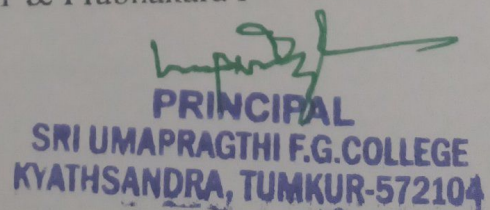 PRINCIPAL
SRI UMAPRAGTHI F.G.COLLEGE
KYATHSANDRA, TUMKUR-572104